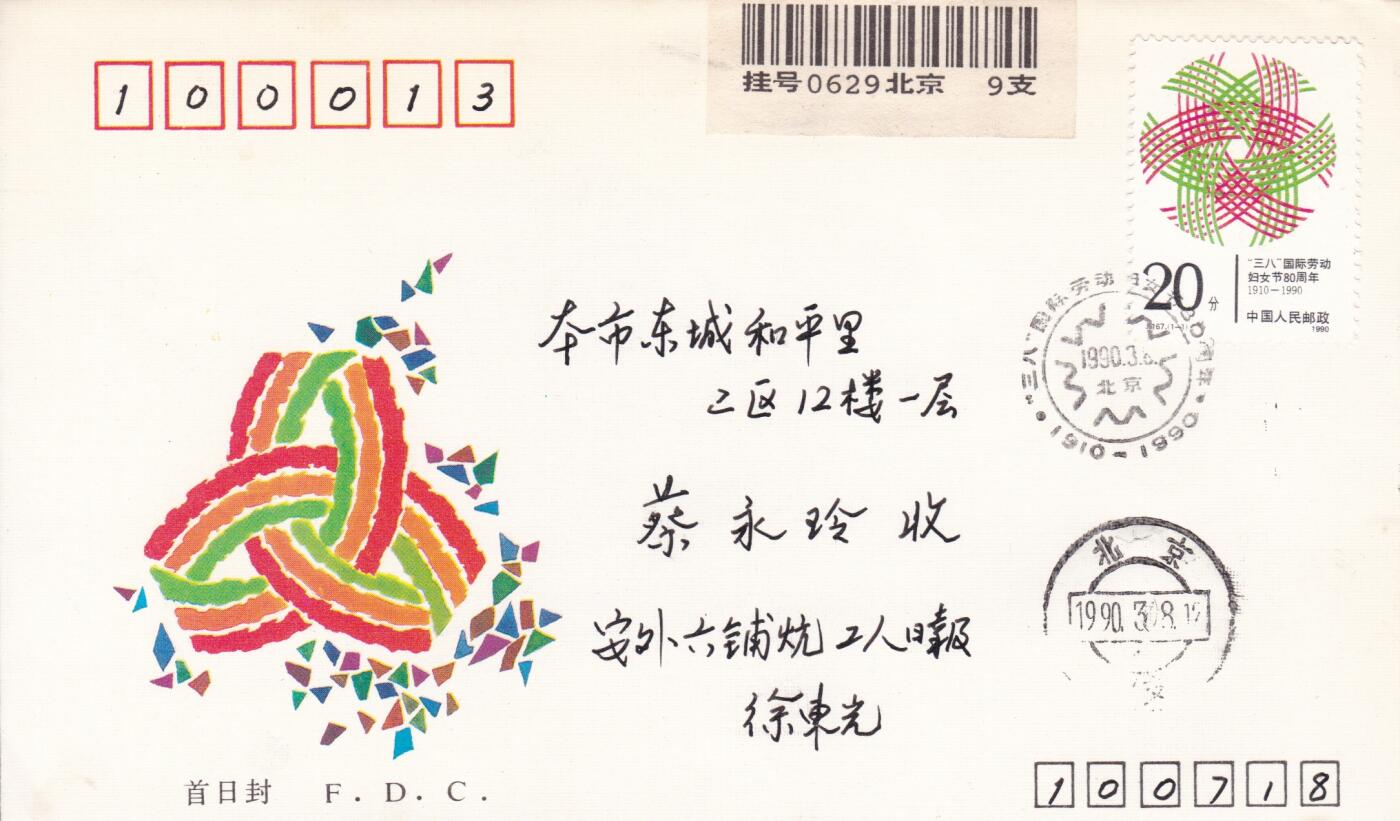 100013
挂号0629北京 9支
20分
"三八"国际劳动
妇女节80周年
1910—1990
J167.(1-1)
中国人民邮政
1990
"三八"国际劳动妇女节80周年·1910-1990·
1990.3.8
北京
本市东城和平里
二区12楼一层
蔡永玲 收
北京
1990.3.8.12
安外六铺炕工人日報
徐東光
首日封 F.D.C.
100718